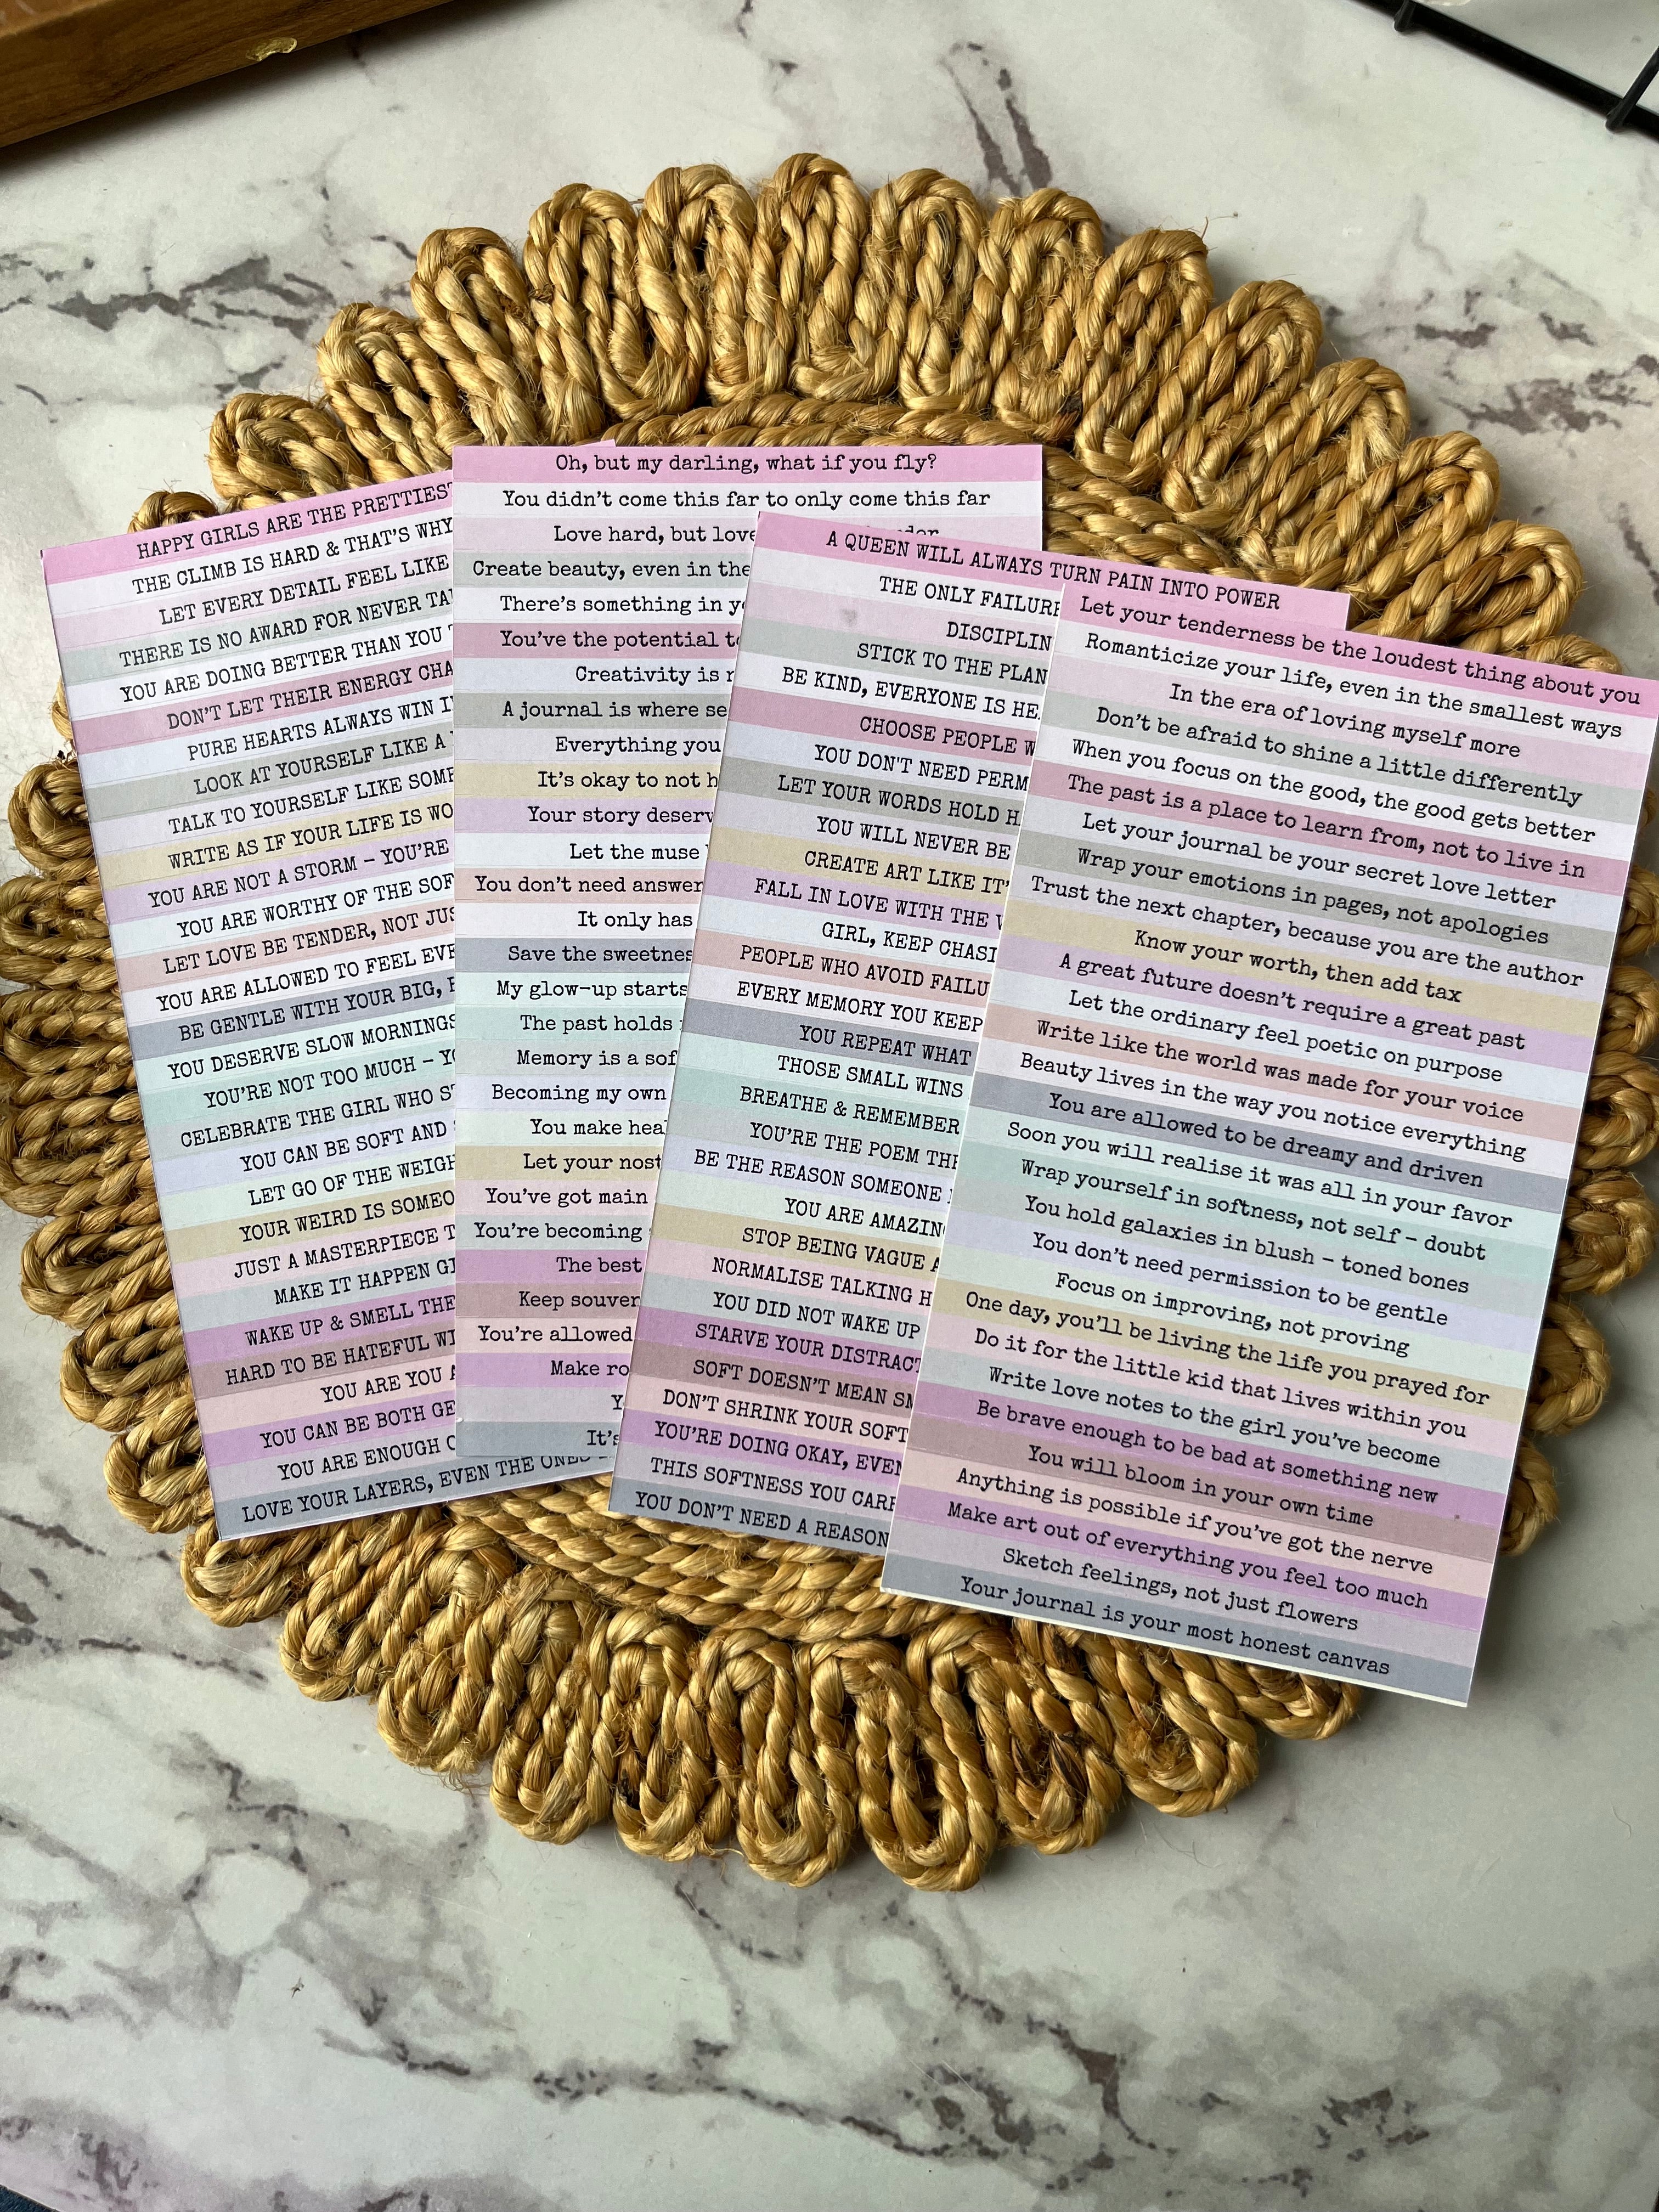 HAPPY GIRLS ARE THE PRETTIEST
THE CLIMB IS HARD & THAT'S WHY
LET EVERY DETAIL FEEL LIKE
THERE IS NO AWARD FOR NEVER
YOU ARE DOING BETTER THAN YOU
DON'T LET THEIR ENERGY
PURE HEARTS ALWAYS WIN
LOOK AT YOURSELF LIKE A
TALK TO YOURSELF LIKE
WRITE AS IF YOUR LIFE IS
YOU ARE NOT A STORM – YOU'RE
YOU ARE WORTHY OF THE
LET LOVE BE TENDER, NOT
YOU ARE ALLOWED TO FEEL
BE GENTLE WITH YOUR BIG,
YOU DESERVE SLOW MORNINGS
YOU'RE NOT TOO MUCH –
CELEBRATE THE GIRL WHO
YOU CAN BE SOFT AND
LET GO OF THE
YOUR WEIRD IS
JUST A MASTERPIECE
MAKE IT HAPPEN
WAKE UP & SMELL THE
HARD TO BE HATEFUL
YOU ARE YOU
YOU CAN BE BOTH
YOU ARE ENOUGH
LOVE YOUR LAYERS, EVEN THE ONES
Oh, but my darling, what if you fly?
You didn't come this far to only come this far
Love hard, but love
Create beauty, even in the
There's something in
You've the potential
Creativity is
A journal is where
Everything you
It's okay to not
Your story
Let the muse
You don't need
It only has
Save the
My glow-up starts
The past holds
Memory is a
Becoming my own
You make
Let your
You've got main
You're becoming
The best
Keep
You're allowed
Make
It's
A QUEEN WILL ALWAYS TURN PAIN INTO POWER
THE ONLY
STICK TO THE PLAN
BE KIND, EVERYONE IS
CHOOSE PEOPLE
YOU DON'T NEED
LET YOUR WORDS HOLD
YOU WILL NEVER BE
CREATE ART LIKE
FALL IN LOVE WITH THE
GIRL, KEEP
PEOPLE WHO AVOID
EVERY MEMORY YOU KEEP
YOU REPEAT WHAT
THOSE SMALL WINS
BREATHE & REMEMBER
YOU'RE THE POEM
BE THE REASON SOMEONE
YOU ARE
STOP BEING VAGUE
NORMALISE TALKING
YOU DID NOT WAKE UP
STARVE YOUR
SOFT DOESN'T MEAN
DON'T SHRINK YOUR
YOU'RE DOING OKAY,
THIS SOFTNESS YOU
YOU DON'T NEED A REASON
Let your tenderness be the loudest thing about you
Romanticize your life, even in the smallest ways
In the era of loving myself more
Don't be afraid to shine a little differently
When you focus on the good, the good gets better
The past is a place to learn from, not to live in
Let your journal be your secret love letter
Wrap your emotions in pages, not apologies
Trust the next chapter, because you are the author
Know your worth, then add tax
A great future doesn't require a great past
Let the ordinary feel poetic on purpose
Write like the world was made for your voice
Beauty lives in the way you notice everything
You are allowed to be dreamy and driven
Soon you will realise it was all in your favor
Wrap yourself in softness, not self – doubt
You hold galaxies in blush – toned bones
You don't need permission to be gentle
Focus on improving, not proving
One day, you'll be living the life you prayed for
Do it for the little kid that lives within you
Write love notes to the girl you've become
Be brave enough to be bad at something new
You will bloom in your own time
Anything is possible if you've got the nerve
Make art out of everything you feel too much
Sketch feelings, not just flowers
Your journal is your most honest canvas